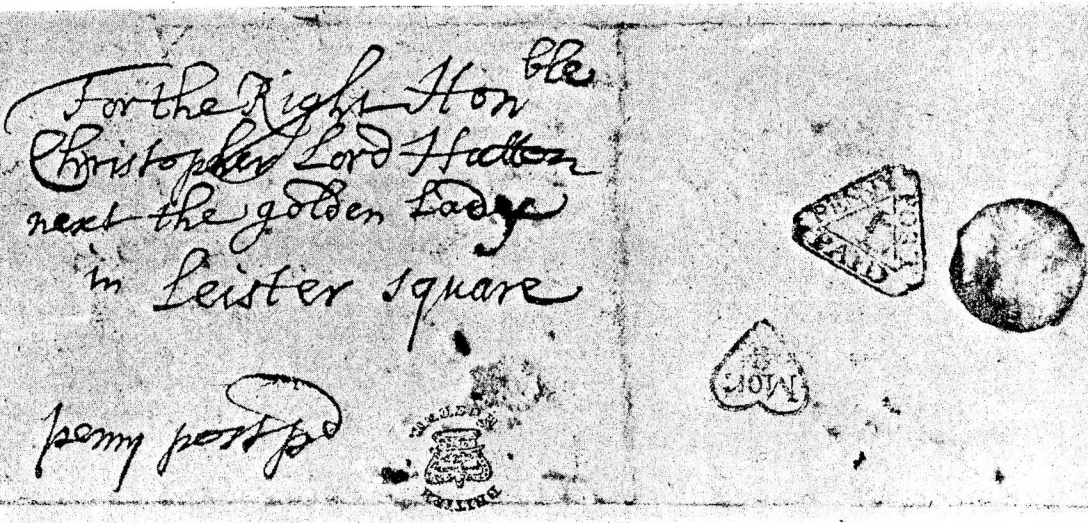 For the Right Hon ble
Christopher Lord Hatton
next the golden Lady
in Leister square
penny post pd
PENNY
POST
PAID
MOR
8